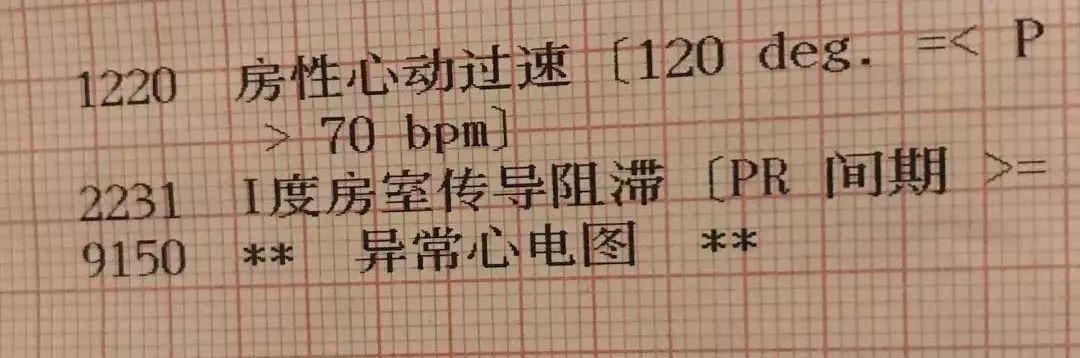 1220 房性心动过速 [120 deg. =< P
> 70 bpm]
2231 I度房室传导阻滞 [PR 间期 >=
9150 ** 异常心电图 **